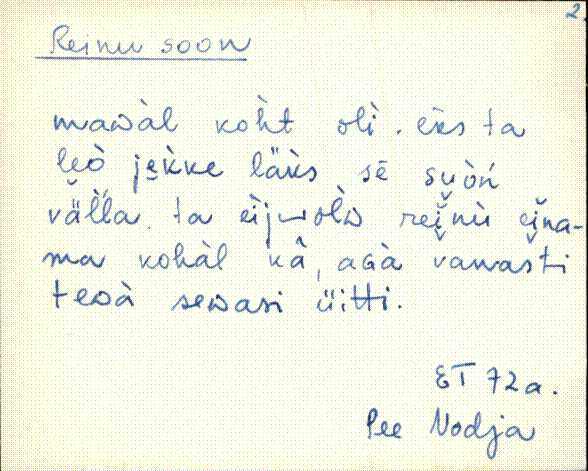 2.
Reinu soon
mawàl koh̀t olì. ēks ta
leò je̮kke läk̀s sē suòń
väl̆l̆a. ta eìj‿olẁ rei̮nù ei̮na-
ma kohàl kâ, aɢà v̆anas̆ti
tewà sewasi üitti.
ET 72a.
Pee Nodja